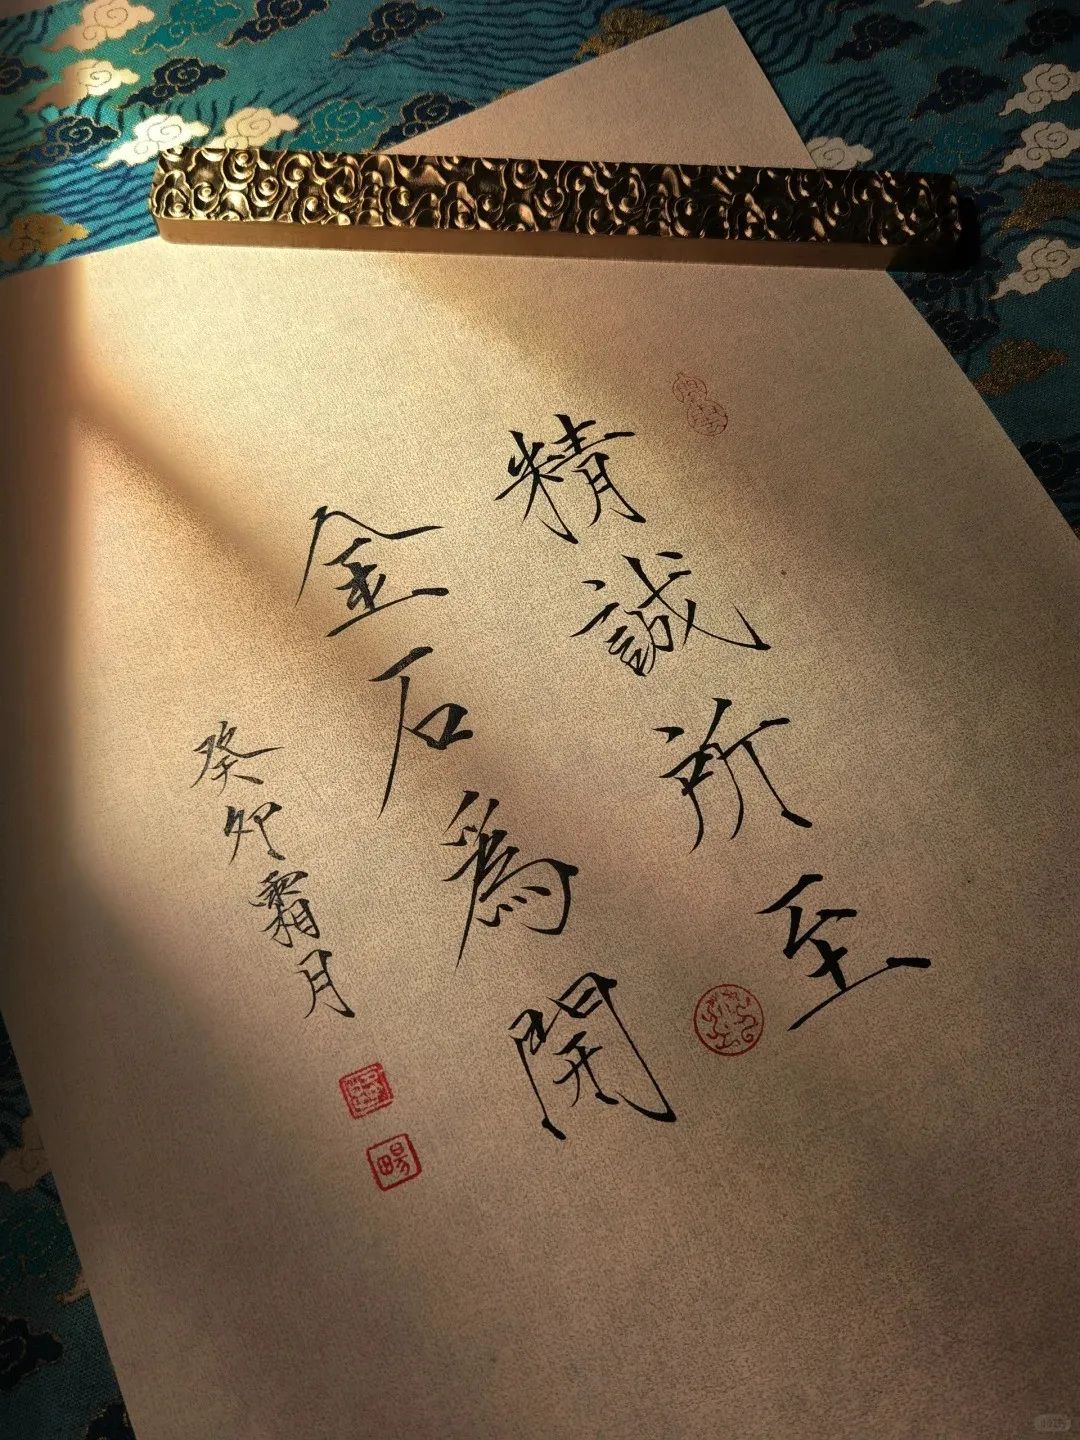 精誠所至
金石為開
癸卯霜月